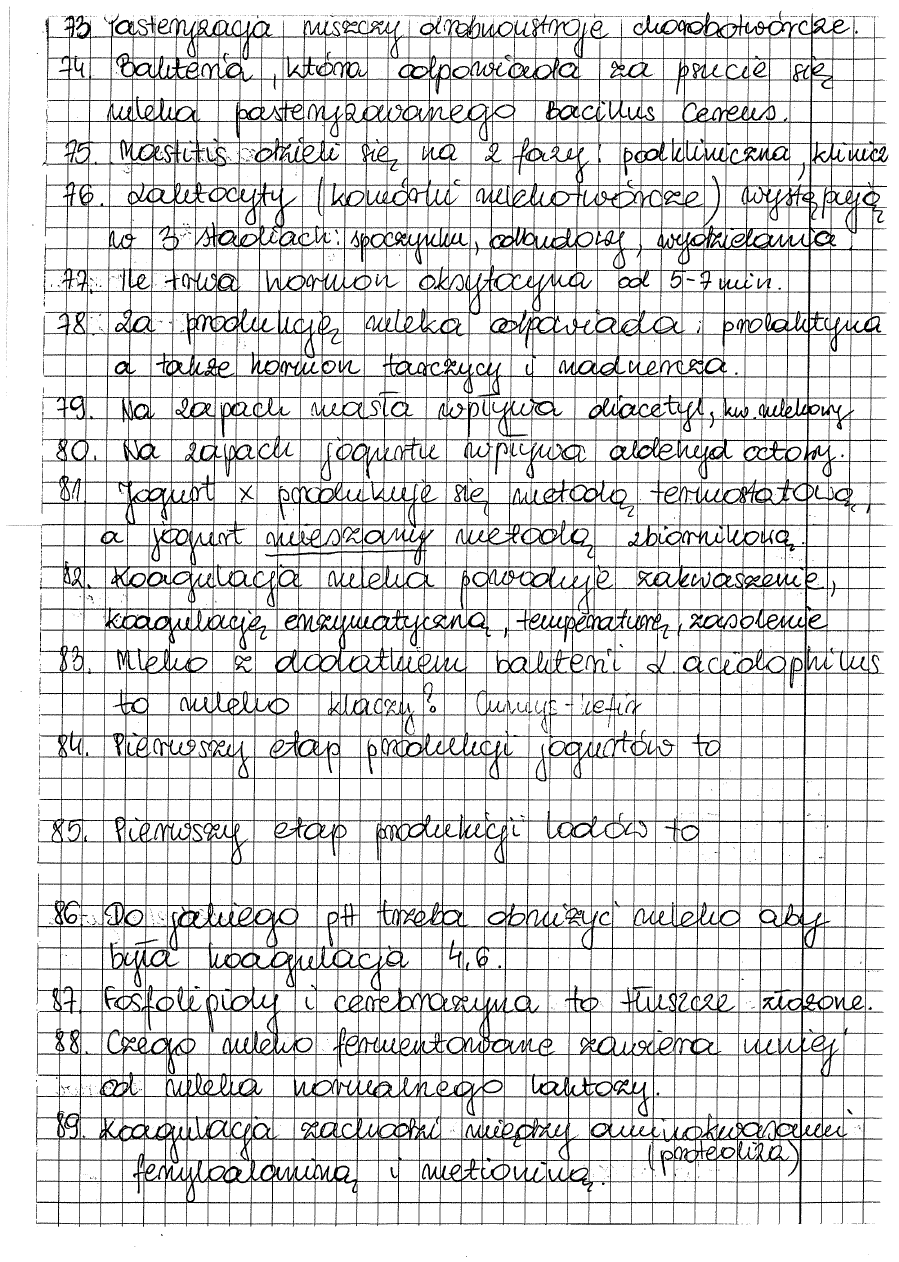 73 Pasteryzacja niszczy drobnoustroje chorobotwórcze.
74 Bakteria, która odpowiada za psucie się
mleka pasteryzowanego Bacillus Cereus.
75. Mastitis dzieli się na 2 fazy: podkliniczna, klinicz
76. Laktocyty (komórki mlekotwórcze) występują
w 3 stadiach: spoczynku, odbudowy, wydzielania
77. Ile trwa hormon oksytocyna od 5-7 min.
78. Za produkcję mleka odpowiada: prolaktyna
a także hormon tarczycy i nadnercza.
79. Na zapach masła wpływa diacetyl, kw. mlekowy
80. Na zapach jogurtu wpływa aldehyd octowy.
81 Jogurt x produkuje się metodą termostatową,
a jogurt mieszany metodą zbiornikową.
82. Koagulacja mleka powoduje zakwaszenie,
koagulację enzymatyczną, temperaturę, zasolenie
83. Mleko z dodatkiem bakterii L. acidophilus
to mleko klaczy? Cumys-kefir
84. Pierwszy etap produkcji jogurtów to
85. Pierwszy etap produkcji lodów to
86. Do jakiego pH trzeba obniżyć mleko aby
była koagulacja 4,6.
87. Fosfolipidy i cerebrazyna to tłuszcze złożone.
88. Czego mleko fermentowane zawiera mniej
od mleka normalnego laktozy.
89. Koagulacja zachodzi między aminokwasami
fenyloalaniną i metioniną. (proteoliza)